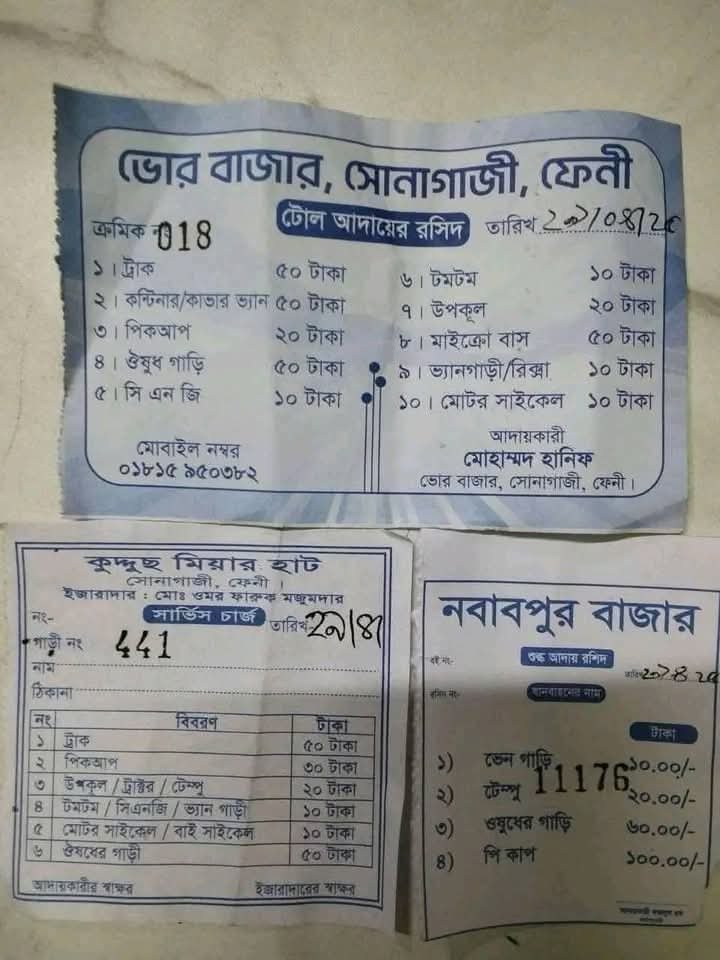 ভোর বাজার, সোনাগাজী, ফেনী
টোল আদায়ের রসিদ
ক্রমিক নং 018
তারিখ
১। ট্রাক ৫০ টাকা
২। কন্টিনার/কাভার ভ্যান ৫০ টাকা
৩। পিকআপ ২০ টাকা
৪। ঔষুধ গাড়ি ৫০ টাকা
৫। সি এন জি ১০ টাকা
৬। টমটম ১০ টাকা
৭। উপকূল ২০ টাকা
৮। মাইক্রো বাস ৫০ টাকা
৯। ভ্যানগাড়ী/রিক্সা ১০ টাকা
১০। মোটর সাইকেল ১০ টাকা
মোবাইল নম্বর
০১৮১৫ ৯৫০৩৮২
আদায়কারী
মোহাম্মদ হানিফ
ভোর বাজার, সোনাগাজী, ফেনী।
কুদ্দুছ মিয়ার হাট
সোনাগাজী, ফেনী ।
ইজারাদার : মোঃ ওমর ফারুক মজুমদার
নং-
সার্ভিস চার্জ
তারিখ
গাড়ী নং 441
নাম
ঠিকানা
নং বিবরণ টাকা
১ ট্রাক ৫০ টাকা
২ পিকআপ ৩০ টাকা
৩ উপকূল / ট্রাক্টর / টেম্পু ২০ টাকা
৪ টমটম / সিএনজি / ভ্যান গাড়ী ১০ টাকা
৫ মোটর সাইকেল / বাই সাইকেল ১০ টাকা
৬ ঔষধের গাড়ী ৫০ টাকা
আদায়কারীর স্বাক্ষর ইজারাদারের স্বাক্ষর
নবাবপুর বাজার
বই নং-
শুল্ক আদায় রশিদ
তারিখ
রসিদ নং-
যানবাহনের নাম
টাকা
১) ভেন গাড়ি ১০.০০/-
11176
২) টেম্পু ২০.০০/-
৩) ওষুধের গাড়ি ৬০.০০/-
৪) পি কাপ ১০০.০০/-